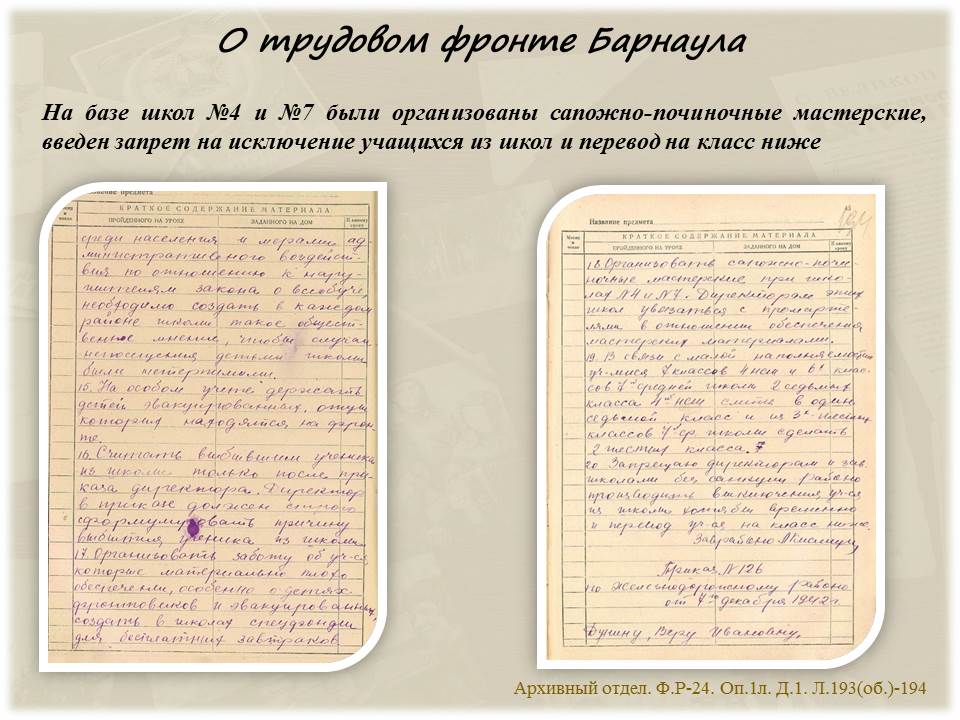 О трудовом фронте Барнаула
На базе школ №4 и №7 были организованы сапожно-починочные мастерские,
введен запрет на исключение учащихся из школ и перевод на класс ниже
Название предмета
КРАТКОЕ СОДЕРЖАНИЕ МАТЕРИАЛА
ПРОЙДЕННОГО НА УРОКЕ ЗАДАННОГО НА ДОМ
среди населения и мерами ад-
министративного воздейст-
вия по отношению к нару-
шителям закона о всеобуче,
необходимо создать в каждом
районе школы такое общест-
венное мнение, чтобы случаи
непосещения детьми школы
были нетерпимыми.
15. На особом учете держать
детей эвакуированных, отцы
которых находятся на фрон-
те.
16. Считать выбывшим ученика
из школы только после при-
каза директора. Директор
в приказе должен строго
сформулировать причину
выбытия ученика из школы.
17. Организовать заботу об уч-ся,
которые материально плохо
обеспечены, особенно о детях
фронтовиков и эвакуированных,
создать в школах спецфонды
для бесплатных завтраков
Название предмета
КРАТКОЕ СОДЕРЖАНИЕ МАТЕРИАЛА
ПРОЙДЕННОГО НА УРОКЕ ЗАДАННОГО НА ДОМ
18. Организовать сапожно-почи-
ночные мастерские при шко-
лах №4 и №7. Директорам этих
школ увязаться с промарте-
лями в отношении обеспечения
мастерских материалами.
19. В связи с малой наполняемостью
уч-мися 7 классов 4 нсш и 6х клас-
сов 7й средней школы 2 седьмых
класса 4й нсш слить в один
седьмой класс и из 3х шестых
классов 7й ср. школы сделать
2 шестых класса.
20. Запрещаю директорам и зав.
школами без санкции районо
производить исключения уч-ся
из школы хотя бы временно
и перевод уч-ся на класс ниже.
Заврайоно
Приказ №126
по Железнодорожному районо
от 7го декабря 1942 г.
Веру Ивановну,
Архивный отдел. Ф.Р-24. Оп.1л. Д.1. Л.193(об.)-194